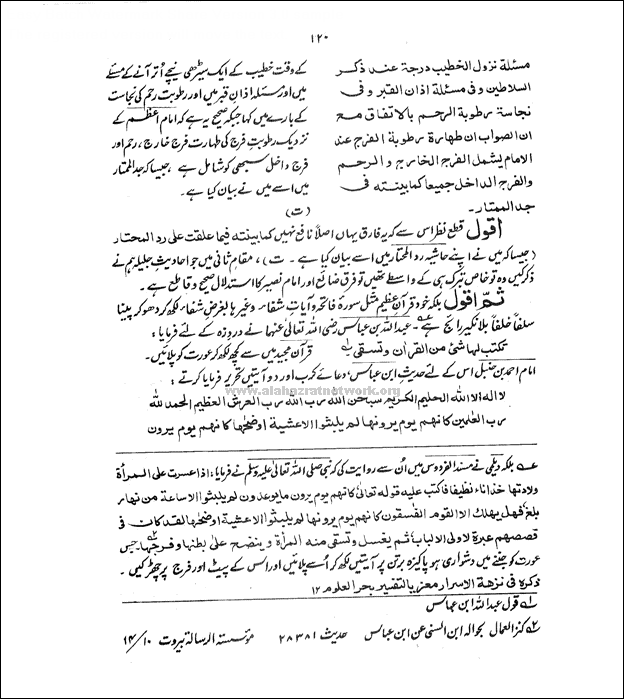 ۱۲۰
مسئلة نزول الخطيب درجة عند ذكر
السلاطين وفى مسئلة اذان القبر و فى
نجاسة رطوبة الرحم بالاتفاق مع
ان الصواب ان طهارة رطوبة الفرج عند
الامام يشمل الفرج الخارج و الرحم
والفرج الداخل جميعا كما بينته فى
جد الممتار۔
کے وقت خطیب کے ایک سیڑھی نیچے اُتر آنے کے مسئلے
میں اور مسئلہ اذانِ قبر میں اور رطوبت رحم کی نجاست
کے بارے میں کہا جبکہ صحیح یہ ہے کہ امام اعظم کے
نزدیک رطوبتِ فرج کی طہارت فرج خارج ، رحم اور
فرج داخل سبھی کو شامل ہے ، جیسا کہ جد الممتار
میں اسے میں نے بیان کیا ہے۔
(ت)
اقول قطع نظر اس سے کہ یہ فارق یہاں اصلاً نافع نہیں کما بینته فیما علقت علی رد المحتار
(جیسا کہ میں نے اپنے حاشیہ رد المحتار میں اسے بیان کیا ہے ۔ ت) ، مقامِ ثانی میں جو احادیث جلیلہ ہم نے
ذکر کیں وہ تو خاص تبرک ہی کے واسطے تھیں تو فرق ضائع اور امام نصیر کا استدلال صحیح و قاطع ہے۔
ثم اقول بلکہ خود قرآن عظیم مثل سورۂ فاتحہ و آیاتِ شفاء وغیرہا بغرضِ شفاء لکھ کر دھو کر پینا
سلفاً خلفاً بلا نکیر رائج ہے عہ۔ عبد اللہ بن عباس رضی اللہ تعالیٰ عنہما نے دردِ زہ کے لئے فرمایا :
تكتب لها شئ من القران و تسقى ۱؎ قرآن مجید میں سے کچھ لکھ کر عورت کو پلائیں۔
امام احمد بن حنبل اس کے لئے حدیث ابن عباس ، دعائے کرب اور دو آیتیں تحریر فرمایا کرتے :
www.alahazratnetwork.org
لا اله الا الله الحليم الكريم سبحٰن الله رب العرش العظيم الحمد لله
رب العٰلمين كانهم يوم يرونها لم يلبثوا الا عشية او ضحٰها كانهم يوم يرون
عہ بلکہ دیلمی نے مسند الفردوس میں اُن سے روایت کی کہ نبی صلی اللہ تعالیٰ علیہ وسلم نے فرمایا : اذا عسرت على المرأة
ولادتها خذ اناء نظيفا فاكتب عليه قوله تعالى كانهم يوم يرون ما يوعدون لم يلبثوا الا ساعة من نهار
بلغ فهل يهلك الا القوم الفسقون كانهم يوم يرونها لم يلبثوا الا عشية او ضحٰها لقد كان فى
قصصهم عبرة لاولى الالباب ثم يغسل و تسقى منه المرأة و ينضح على بطنها و فرجها ۲؎ جس
عورت کو جننے میں دشواری ہو پاکیزہ برتن پر آیتیں لکھ کر اُسے پلائیں اور اس کے پیٹ اور فرج پر چھڑکیں ۔
ذكره فى نزهة الاسرار معزيا لتفسير بحر العلوم ۱۲
۱؎ قول عبد اللہ ابن عباس
۲؎ کنز العمال بحوالہ ابن السنی عن ابن عباس حدیث ۲۸۳۸۱ مؤسسۃ الرسالۃ بیروت ۱۰/ ۶۴